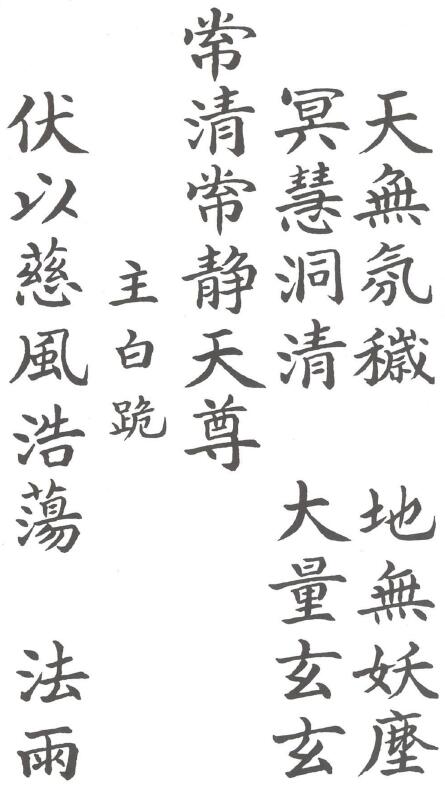 天無氛穢　地無妖塵
冥慧洞清　大量玄玄
常清常静天尊
主白跪
伏以慈風浩蕩　法雨